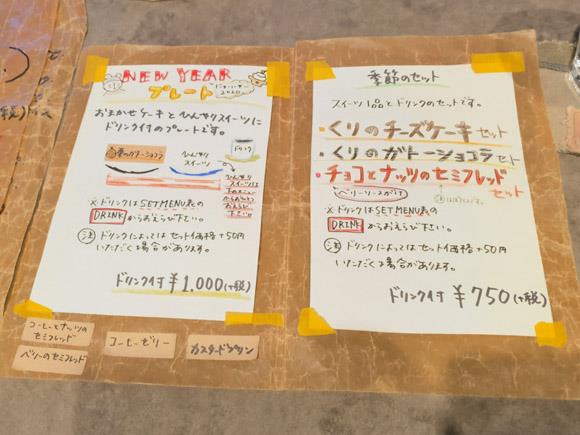 NEW YEAR
プレート
おまかせケーキとひんやりスイーツに
ドリンク付のプレートです。
ひんやり
スイーツ
ドリンク
ひんやり
スイーツは
下のメニュー
からおひとつ
おえらび
下さい。
※ドリンクはSET MENU表の
DRINKからおえらび下さい。
注 ドリンクによってはセット価格+50円
いただく場合があります。
ドリンク付 ¥1,000(+税)
コーヒーとナッツの
セミフレッド
ベリーのセミフレッド
コーヒーゼリー
カスタードプリン
季節のセット
スイーツ1品とドリンクのセットです。
・くりのチーズケーキセット
・くりのガトーショコラセット
・チョコとナッツのセミフレッド
セット
ベリーソースがけ
※ドリンクはSET MENU表の
DRINKからおえらび下さい。
注 ドリンクによってはセット価格+50円
いただく場合があります。
ドリンク付 ¥750(+税)